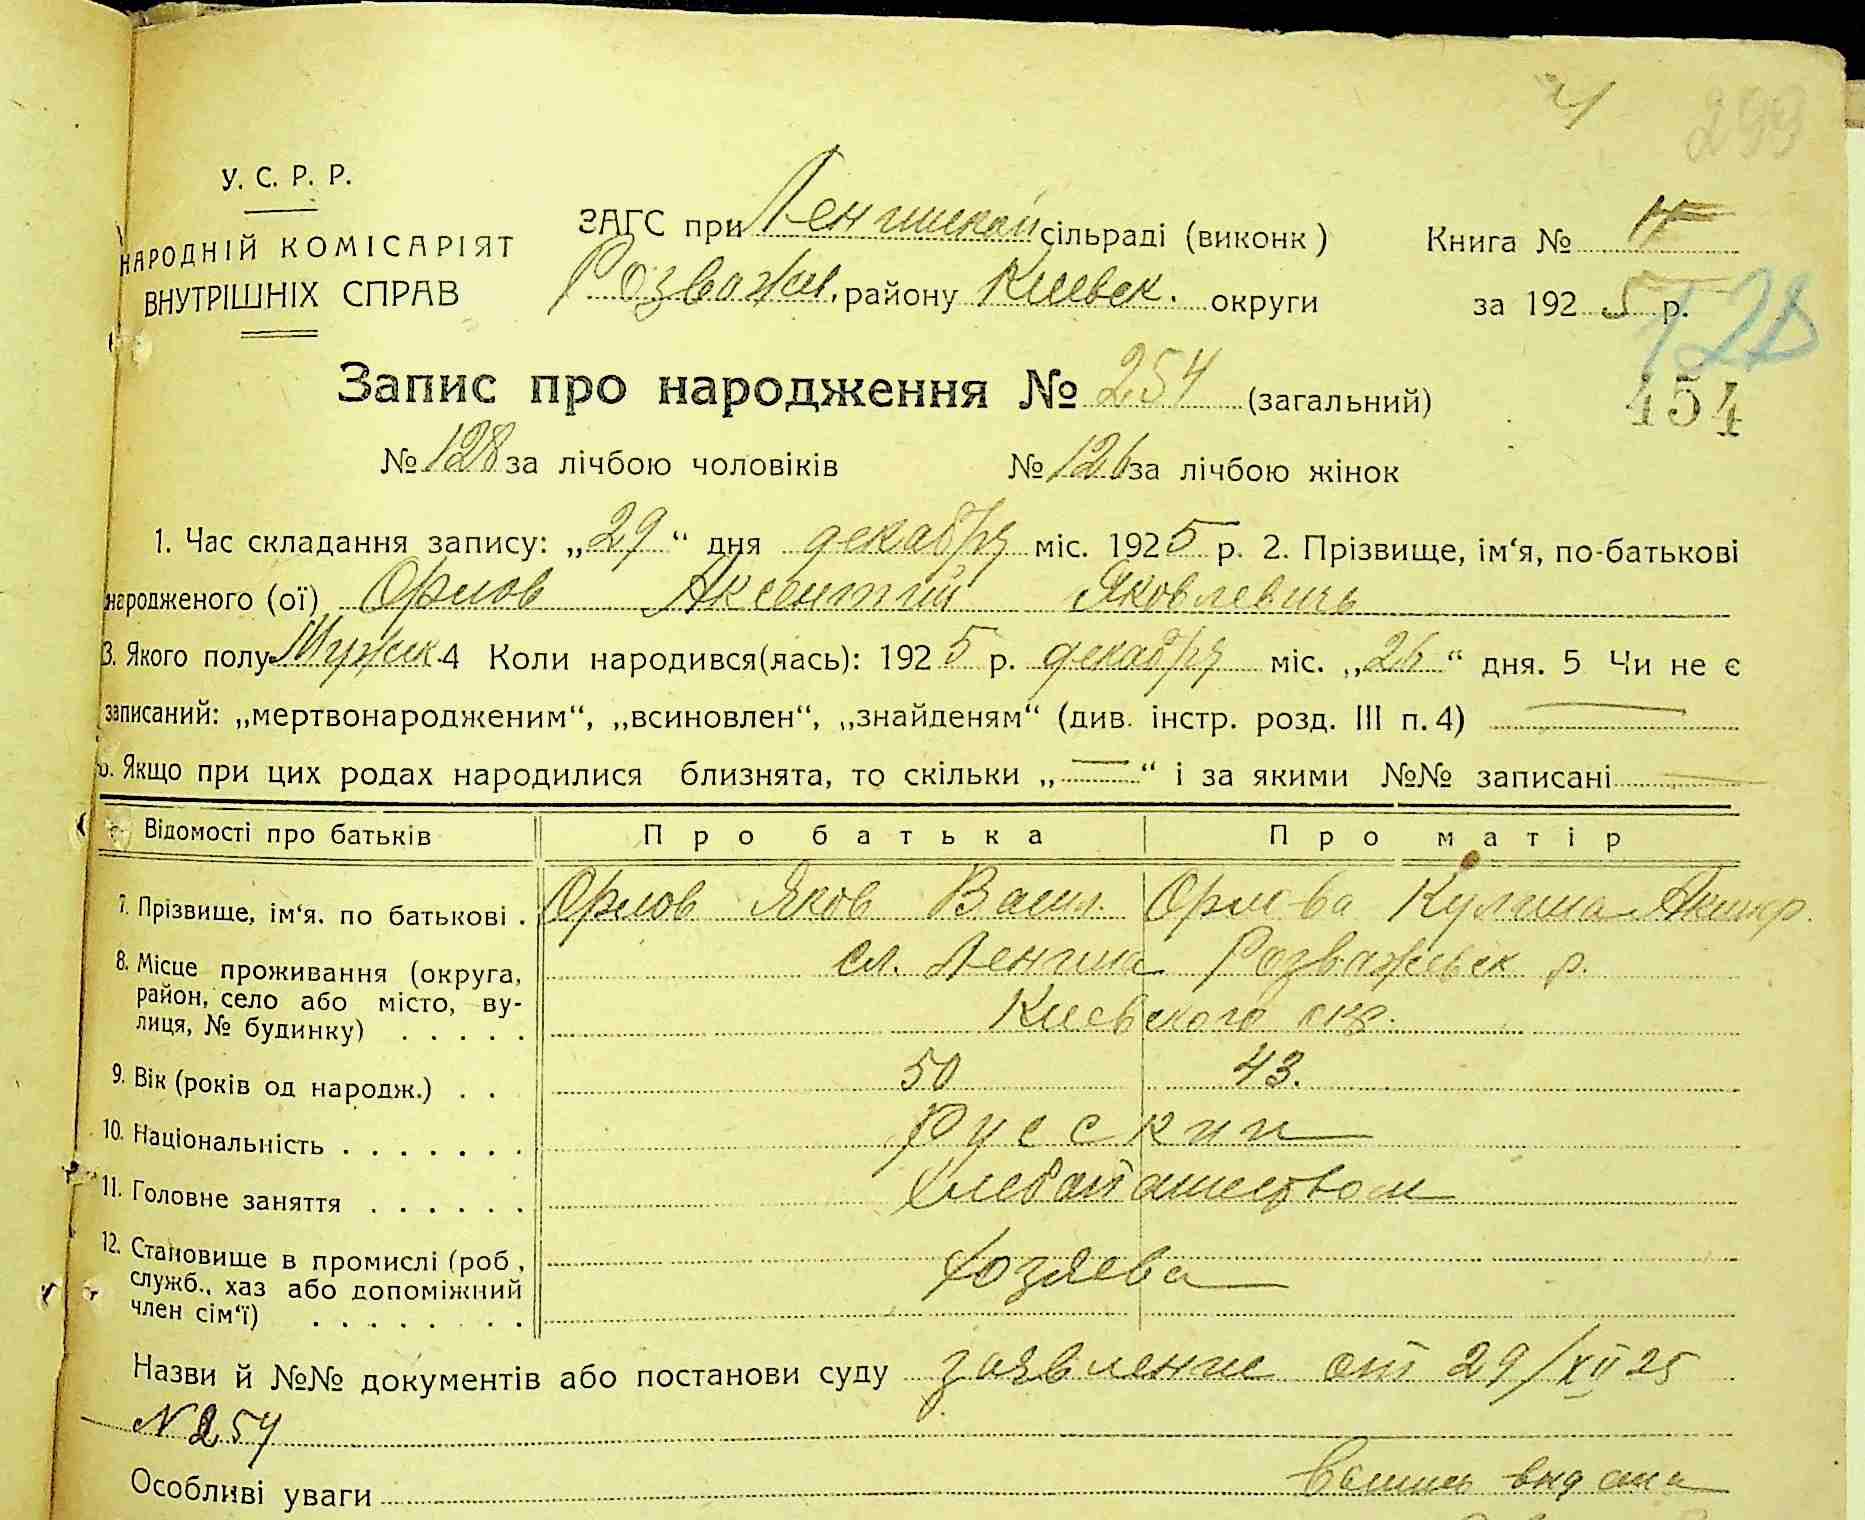 299
У. С. Р. Р.
НАРОДНІЙ КОМІСАРІЯТ
ВНУТРІШНІХ СПРАВ
ЗАГС при Ленинской сільраді (виконк)
Розважив. району Киевск. округи
Книга №
за 1925 р.
128
454
Запис про народження № 254 (загальний)
№ 128 за лічбою чоловіків № 126 за лічбою жінок
1. Час складання запису: „29“ дня декабря міс. 1925 р. 2. Прізвище, ім‘я, по-батькові
народженого (ої) Орлов Аксентий Яковлевичь
3. Якого полу Мужск 4 Коли народився(лась): 1925 р. декабря міс. „26“ дня. 5 Чи не є
записаний: „мертвонародженим“, „всиновлен“, „знайденям“ (див. інстр. розд. III п. 4) —
6. Якщо при цих родах народилися близнята, то скільки „—“ і за якими №№ записані —
Відомості про батьків Про батька Про матір
7. Прізвище, ім‘я. по батькові . Орлов Яков Васил. Орлова Кулина
8. Місце проживання (округа,
район, село або місто, ву-
лиця, № будинку) . . . . .
сл. Розважевск р.
Киевского окр.
9. Вік (років од народж.) . . 50 43.
10. Національність . . . . . . . Русскии
11. Головне заняття . . . . . . Хлебопашеством
12. Становище в промислі (роб,
служб., хаз або допоміжний
член сім‘ї) . . . . . . . .
Хозяева
Назви й №№ документів або постанови суду заявление от 29/XII 25
N 254
Особливі уваги выпись выдана